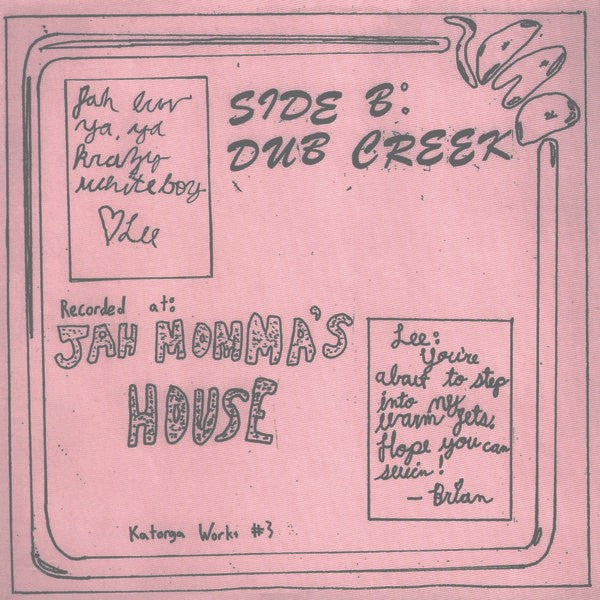 Jah luv
ya, ya
krazy
white boy
♡Lee
SIDE B:
DUB CREEK
Recorded at:
JAH MOMMA'S
HOUSE
Lee:
You're
about to step
into my
warm jets.
Hope you can
swim!
— Brian
Katorga Works #3